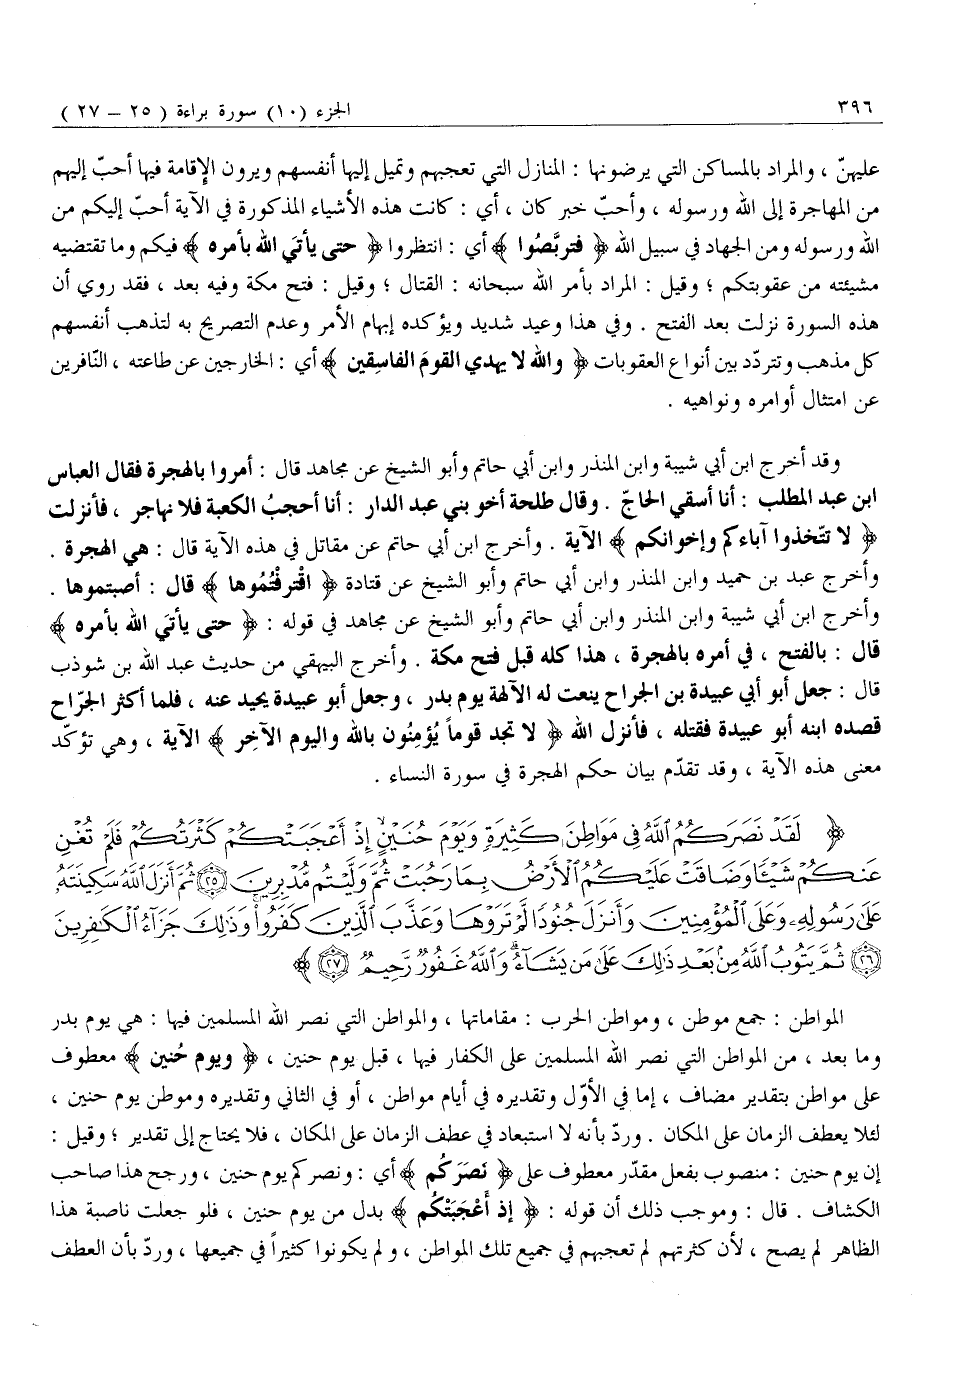 ٣٩٦
الجزء (١٠) سورة براءة ( ٢٥ – ٢٧ )
عليهنّ ، والمراد بالمساكن التي يرضونها : المنازل التي تعجبهم وتميل إليها أنفسهم ويرون الإقامة فيها أحبّ إليهم
من المهاجرة إلى الله ورسوله ، وأحبّ خبر كان ، أي : كانت هذه الأشياء المذكورة في الآية أحبّ إليكم من
الله ورسوله ومن الجهاد في سبيل الله ﴿ فتربَّصُوا ﴾ أي : انتظروا ﴿ حتى يأتيَ الله بأمره ﴾ فيكم وما تقتضيه
مشيئته من عقوبتكم ؛ وقيل : المراد بأمر الله سبحانه : القتال ؛ وقيل : فتح مكة وفيه بعد ، فقد روي أن
هذه السورة نزلت بعد الفتح . وفي هذا وعيد شديد ويؤكده إبهام الأمر وعدم التصريح به لتذهب أنفسهم
كل مذهب وتتردّد بين أنواع العقوبات ﴿ والله لا يهدي القومَ الفاسقين ﴾ أي : الخارجين عن طاعته ، النّافرين
عن امتثال أوامره ونواهيه .
وقد أخرج ابن أبي شيبة وابن المنذر وابن أبي حاتم وأبو الشيخ عن مجاهد قال : أمروا بالهجرة فقال العباس
ابن عبد المطلب : أنا أسقي الحاجّ . وقال طلحة أخو بني عبد الدار : أنا أحجبُ الكعبة فلا نهاجر ، فأنزلت
﴿ لا تتّخذوا آباءكم وإخوانكم ﴾ الآية . وأخرج ابن أبي حاتم عن مقاتل في هذه الآية قال : هي الهجرة .
وأخرج عبد بن حميد وابن المنذر وابن أبي حاتم وأبو الشيخ عن قتادة ﴿ اقْترفْتُمُوها ﴾ قال : أصبتموها .
وأخرج ابن أبي شيبة وابن المنذر وابن أبي حاتم وأبو الشيخ عن مجاهد في قوله : ﴿ حتى يأتيَ الله بأمره ﴾
قال : بالفتح ، في أمره بالهجرة ، هذا كله قبل فتح مكة . وأخرج البيهقي من حديث عبد الله بن شوذب
قال : جعل أبو أبي عبيدة بن الجراح ينعت له الآلهة يوم بدر ، وجعل أبو عبيدة يحيد عنه ، فلما أكثر الجرّاح
قصده ابنه أبو عبيدة فقتله ، فأنزل الله ﴿ لا تجد قوماً يُؤمِنُون بالله واليوم الآخِر ﴾ الآية ، وهي تؤكّد
معنى هذه الآية ، وقد تقدّم بيان حكم الهجرة في سورة النساء .
﴿ لَقَدْ نَصَرَكُمُ ٱللَّهُ فِى مَوَاطِنَ كَثِيرَةٍ وَيَوْمَ حُنَيْنٍ إِذْ أَعْجَبَتْكُمْ كَثْرَتُكُمْ فَلَمْ تُغْنِ
عَنكُمْ شَيْـًٔا وَضَاقَتْ عَلَيْكُمُ ٱلْأَرْضُ بِمَا رَحُبَتْ ثُمَّ وَلَّيْتُم مُّدْبِرِينَ ﴿٢٥﴾ ثُمَّ أَنزَلَ ٱللَّهُ سَكِينَتَهُۥ
عَلَىٰ رَسُولِهِۦ وَعَلَى ٱلْمُؤْمِنِينَ وَأَنزَلَ جُنُودًا لَّمْ تَرَوْهَا وَعَذَّبَ ٱلَّذِينَ كَفَرُوا۟ وَذَٰلِكَ جَزَآءُ ٱلْكَٰفِرِينَ
﴿٢٦﴾ ثُمَّ يَتُوبُ ٱللَّهُ مِنۢ بَعْدِ ذَٰلِكَ عَلَىٰ مَن يَشَآءُ ۗ وَٱللَّهُ غَفُورٌ رَّحِيمٌ ﴿٢٧﴾ ﴾
المواطن : جمع موطن ، ومواطن الحرب : مقاماتها ، والمواطن التي نصر الله المسلمين فيها : هي يوم بدر
وما بعد ، من المواطن التي نصر الله المسلمين على الكفار فيها ، قبل يوم حنين ، ﴿ ويوم حُنين ﴾ معطوف
على مواطن بتقدير مضاف ، إما في الأوّل وتقديره في أيام مواطن ، أو في الثاني وتقديره وموطن يوم حنين ،
لئلا يعطف الزمان على المكان . وردّ بأنه لا استبعاد في عطف الزمان على المكان ، فلا يحتاج إلى تقدير ؛ وقيل :
إن يوم حنين : منصوب بفعل مقدّر معطوف على ﴿ نَصَرَكُم ﴾ أي : ونصركم يوم حنين ، ورجح هذا صاحب
الكشاف . قال : وموجب ذلك أن قوله : ﴿ إذ أَعْجَبَتْكُم ﴾ بدل من يوم حنين ، فلو جعلت ناصبة هذا
الظاهر لم يصح ، لأن كثرتهم لم تعجبهم في جميع تلك المواطن ، ولم يكونوا كثيراً في جميعها ، وردّ بأن العطف